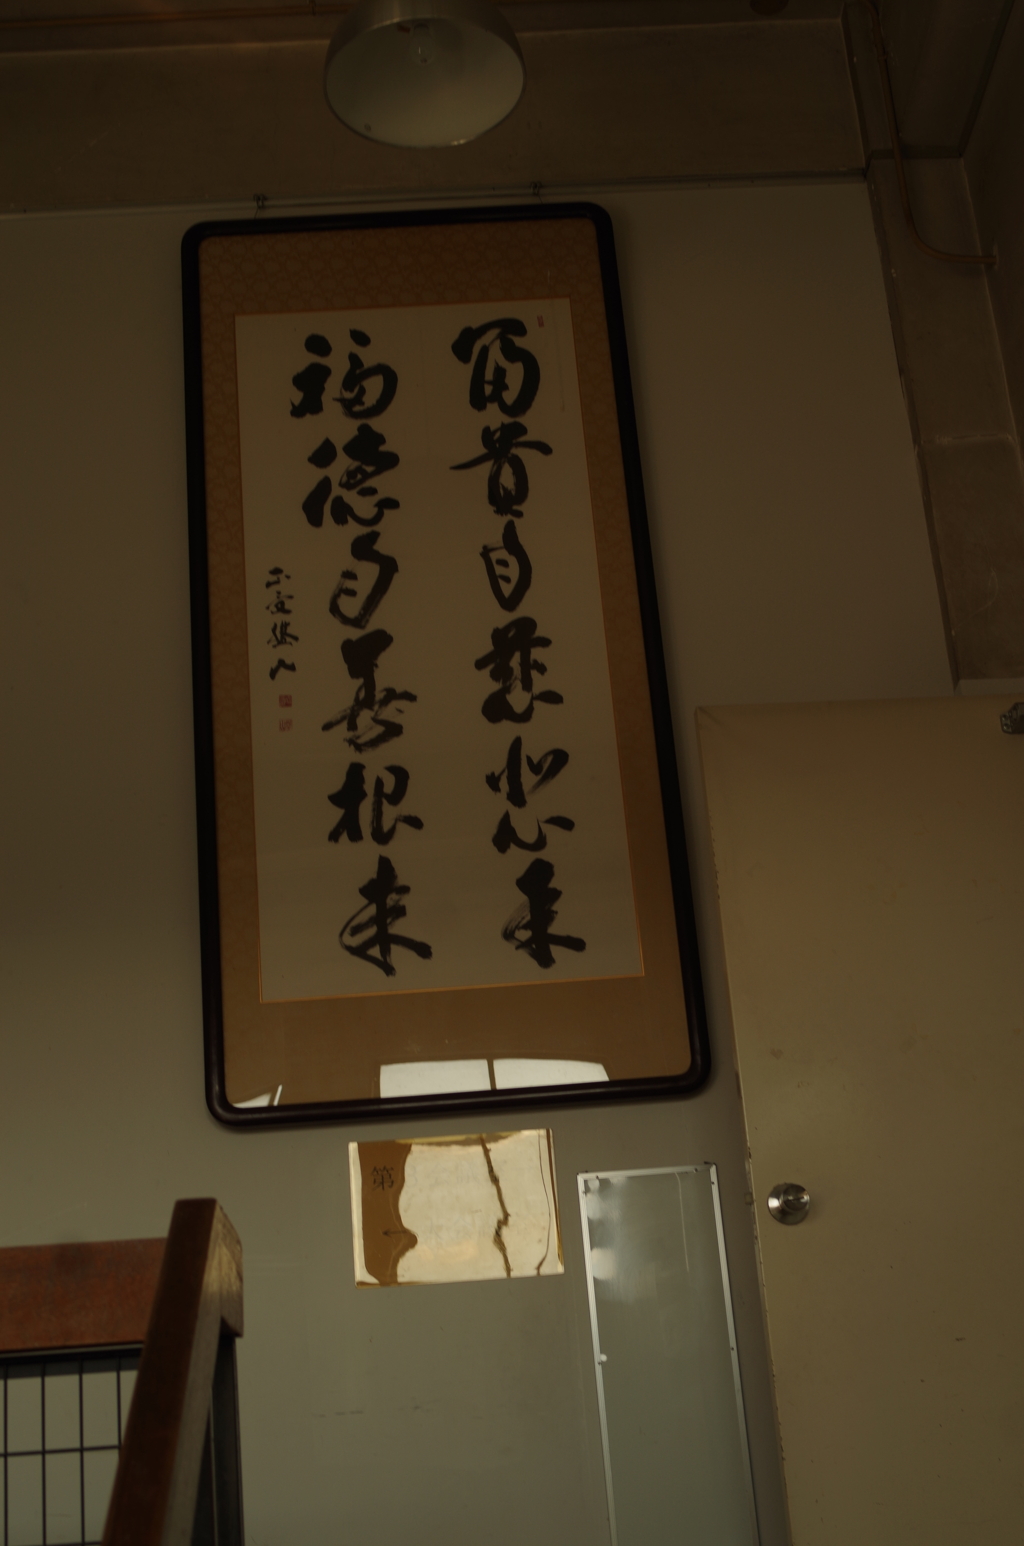 富貴自慈悲来
福徳自善根来
第